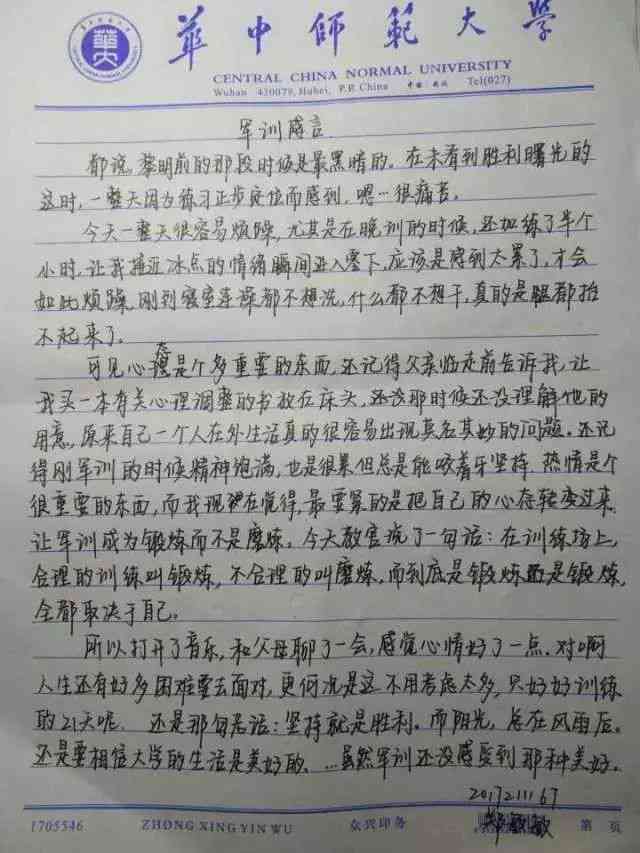 華中師範大學
CENTRAL CHINA NORMAL UNIVERSITY
Wuhan 430079, Hubei, P.R. China 中国·武汉 Tel(027)
军训感言
都说,黎明前的那段时候是最黑暗的。在未看到胜利曙光的
这时,一整天因为练习正步定位而感到,嗯…很痛苦。
今天一整天很容易烦躁,尤其是在晚训的时候,还加练了半个
小时,让我接近冰点的情绪瞬间进入零下,应该是感到太累了,才会
如此烦躁。刚到寝室连澡都不想洗,什么都不想干,真的是腿都抬
不起来了。
可见心态是个多重要的东西,还记得父亲临走前告诉我,让
我买一本有关心理调整的书放在床头,还没那时候还没理解他的
用意。原来自己一个人在外生活真的很容易出现莫名其妙的问题。还记
得刚军训的时候精神饱满,也是很累但总是能咬着牙坚持.热情是个
很重要的东西,而我现在觉得,最要紧的是把自己的心态转变过来.
让军训成为锻炼而不是磨炼。今天教官说了一句话:在训练场上,
合理的训练叫锻炼,不合理的叫磨炼,而到底是锻炼还是锻炼,
全都取决于自己。
所以打开了音乐,和父母聊了一会,感觉心情好了一点.对啊
人生还有好多困难要去面对,更何况是这不用考虑太多,只好好训练
的21天呢. 还是那句老话:坚持就是胜利。而阳光,总在风雨后。
还是要相信大学的生活是美好的、…虽然军训还没感受到那种美好.
2017211167
敏
1705546 ZHONG XING YIN WU 众兴印务 第 页